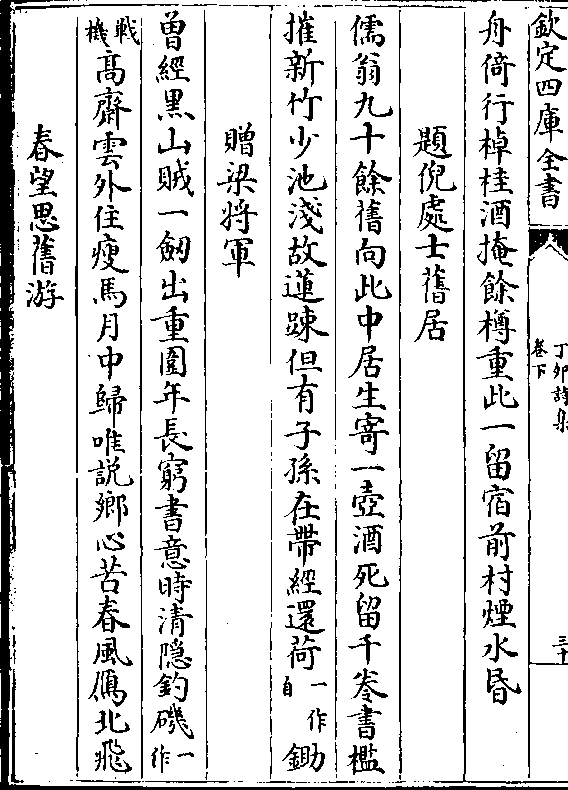 欽定四庫全書
丁卯詩集
卷下
三十
舟倚行棹桂酒掩餘樽重此一留宿前村煙水昏
題倪處士舊居
儒翁九十餘舊向此中居生寄一壺酒死留千卷書檻
摧新竹少池淺故蓮踈但有子孫在帶經還荷一作自鋤
贈梁将軍
曽經黒山賊一劒出重圍年長窮書意時清隠釣磯一作
戰機髙齋雲外住瘦馬月中歸唯説鄉心苦春風鴈北飛
春望思舊游